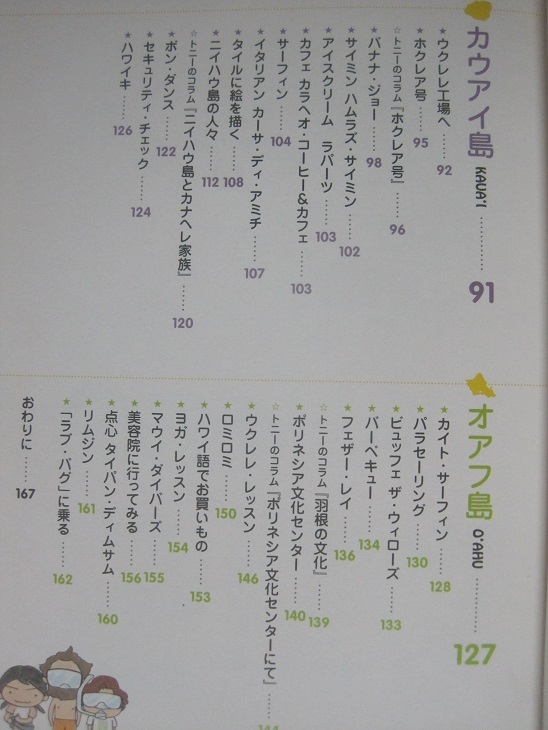 カウアイ島 KAUA'I ………… 91
★ウクレレ工場へ …… 92
★ホクレア号 …… 95
☆トニーのコラム『ホクレア号』 …… 96
★バナナ・ジョー …… 98
★サイミン ハムラズ・サイミン …… 102
★アイスクリーム ラパーツ …… 103
★カフェ カラヘオ・コーヒー&カフェ …… 103
★サーフィン …… 104
★イタリアン カーサ・ディ・アミチ …… 107
★タイルに絵を描く …… 108
★ニイハウ島の人々 …… 112
☆トニーのコラム『ニイハウ島とカナヘレ家族』 …… 120
★ボン・ダンス …… 122
★セキュリティ・チェック …… 124
★ハワイキ …… 126
オアフ島 O'AHU ………… 127
★カイト・サーフィン …… 128
★パラセーリング …… 130
★ビュッフェ ザ・ウィローズ …… 133
★バーベキュー …… 134
★フェザー・レイ …… 136
☆トニーのコラム『羽根の文化』 …… 139
★ポリネシア文化センター …… 140
☆トニーのコラム『ポリネシア文化センターにて』 ……
★ウクレレ・レッスン …… 146
★ロミロミ …… 150
★ハワイ語でお買いもの …… 153
★ヨガ・レッスン …… 154
★マウイ・ダイバーズ …… 155
★美容院に行ってみる …… 156
★点心 タイパン・ディムサム …… 160
★リムジン …… 161
★「ラブ・バグ」に乗る …… 162
おわりに …… 167